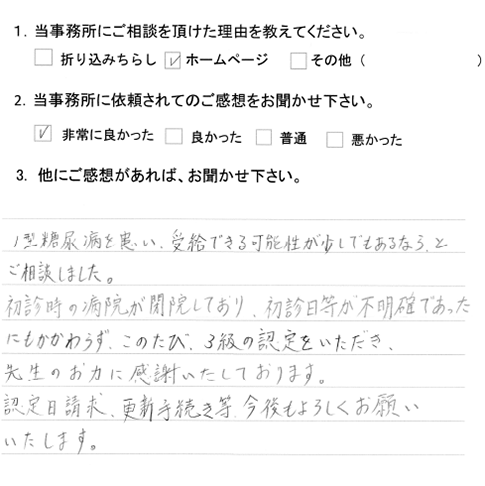 1. 当事務所にご相談を頂けた理由を教えてください。
□ 折り込みちらし ☑ ホームページ □ その他 （　　　　　　　）
2. 当事務所に依頼されてのご感想をお聞かせ下さい。
☑ 非常に良かった □ 良かった □ 普通 □ 悪かった
3. 他にご感想があれば、お聞かせ下さい。
1型糖尿病を患い、受給できる可能性が少しでもあるなら、と
ご相談しました。
初診時の病院が閉院しており、初診日等が不明確であった
にもかかわらず、このたび、3級の認定をいただき、
先生のお力に感謝いたしております。
認定日請求、更新手続き等、今後もよろしくお願い
いたします。